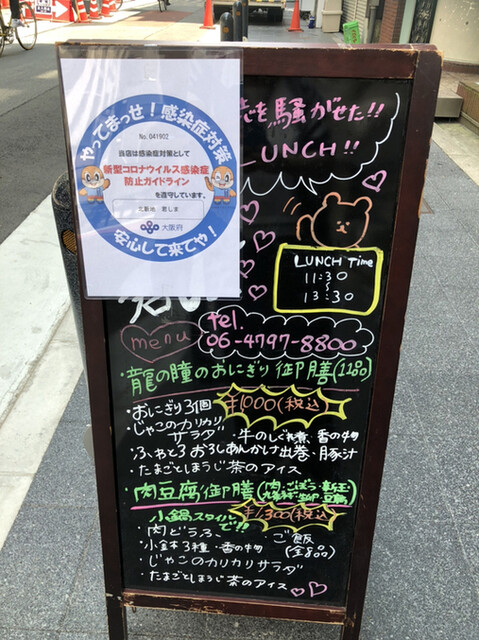 やってまっせ！感染症対策
No. 041902
当店は感染症対策として
新型コロナウイルス感染症
防止ガイドライン
を遵守しています。
北新地 君しま
大阪府
安心して来てや！
を騒がせた!!
LUNCH!!
LUNCH Time
11:30
〜
13:30
menu
tel.
06-4797-8800
龍の瞳のおにぎり御膳(全11品)
¥1000(税込)
・おにぎり3個
・じゃこのカリカリ
サラダ
・牛のしぐれ煮・香の物
・ふわとろおろしあんかけ出巻・豚汁
・たまごとほうじ茶のアイス
・肉豆腐御膳(肉・ごぼう・
小鍋スタイルで!!
¥1,300(税込)
・肉どうふ
・ご飯
・小鉢3種・香の物
(全8品)
・じゃこのカリカリサラダ
・たまごとほうじ茶のアイス